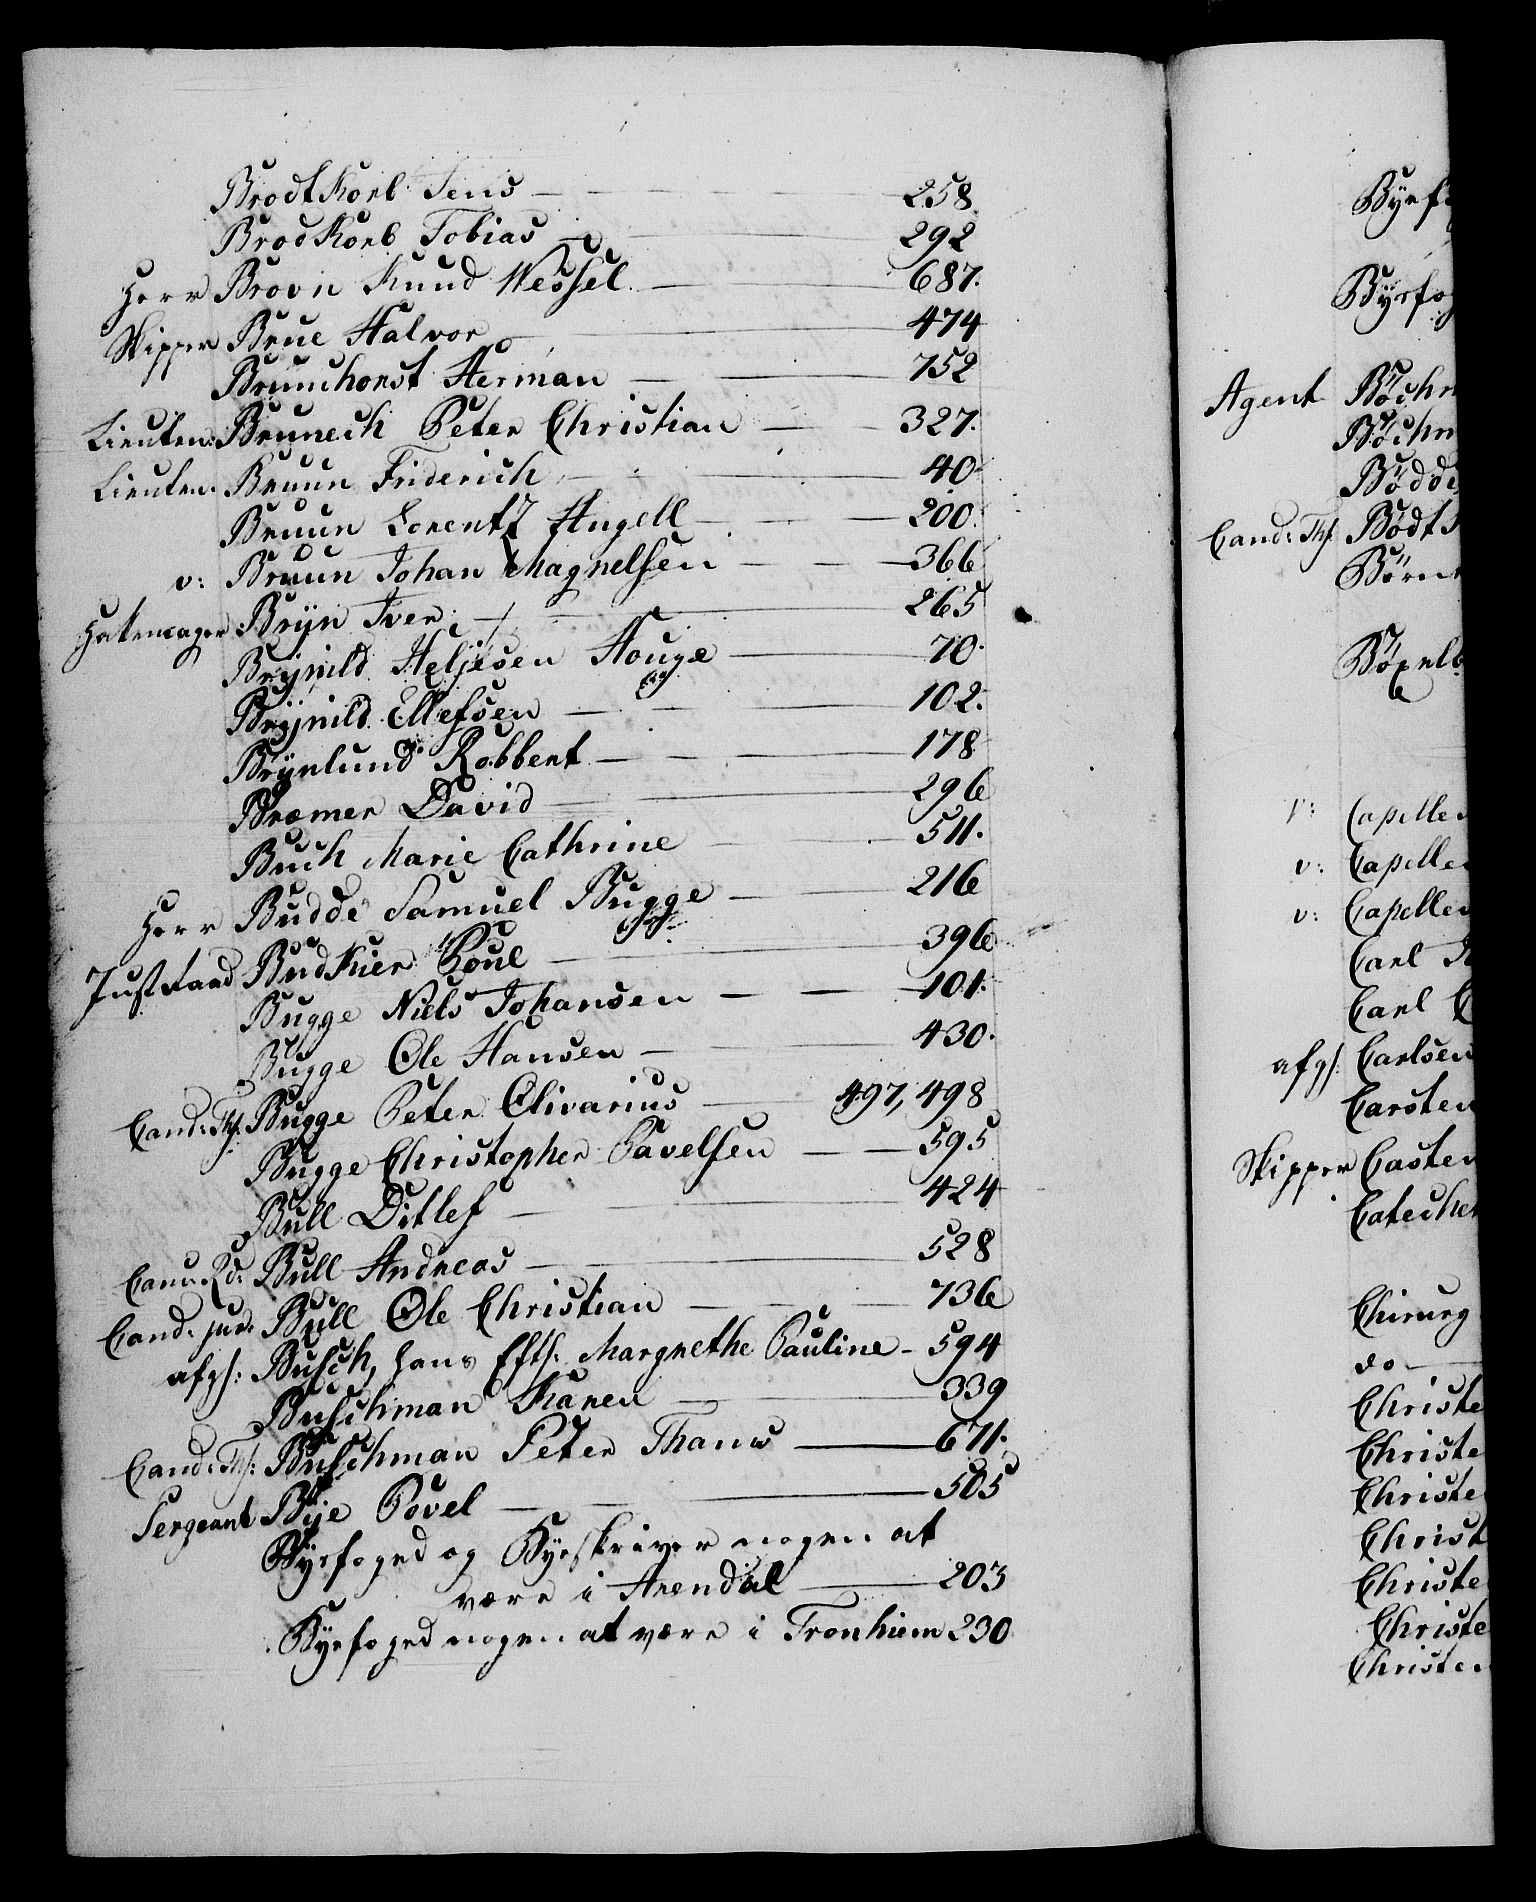 Brodtkorb Jens — 258.
Brodkorb Tobias — 292
Herr Brovn Knud Wessel. — 687.
Skipper Brue Halvor — 474
Brunchorst Herman — 752
Lieuten: Brunech Peter Christian — 327.
Lieuten. Bruun Friderich — 40
Bruun Lorentz Angell — 200.
v: Bruun Johan Magnelsen — 366
Bryn Iver — 265
Brynild Heljesen Houge — 70.
Brynild Ellefsen — 102.
Brynlund Robbert — 178
Bræmer David — 296
Buch Marie Cathrine — 511.
Herr Budde Samuel Bugge — 216
Justraad Budkier Poul — 396
Bugge Niels Johansen — 101.
Bugge Ole Hansen — 430.
Cand: Th: Bugge Peter Olivarius — 497, 498
Bugge Christopher Pavelsen — 595
Bull Ditlef — 424
Bull Andreas — 528
Cand: jur: Bull Ole Christian — 736
afgs: Busch, Hans Efts: Margrethe Pauline - 594
Buschman Karen — 339
Cand: Th: Buschman Peter Thams — 671.
Sergeant Bye Povel — 505
Byefoged og Byeskriver nogen at
være i Arendal — 203
Byefoged nogen at være i Tronhiem 230
Byef
Byefog
Agent Bøchm
Bøchm
Bødde
Cand: Th: Bødt
Børn
v: Capelle
v: Capelle
v: Capelle
Carl
Carl
afgs: Carlsen
Carsten
Skipper Casten
Cateche
Chirurg
do —
Christe
Christe
Christe
Christ
Christe
Christe
Christen